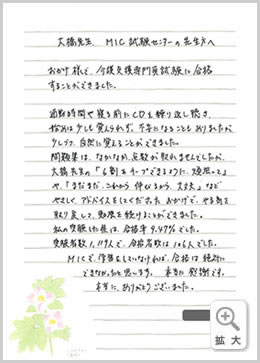 大橋先生、MIC試験センターの先生方へ
おかげ様で、介護支援専門員試験に合格
することができました。
通勤時間や寝る前にCDを繰り返し聴き、
始めは少しも覚えられず、不安になることもありましたが
少しづつ、自然に覚えることができました。
問題集は、なかなか点数が取れませんでしたが、
大橋先生の「6割をキープできるように頑張って」
や、「まだまだ、これから伸びるから、大丈夫」など
やさしくアドバイスをしてくださった おかげで、やる気を
取り戻して、勉強を続けることができました。
私の受験した県は、合格率9.47%でした。
受験者数1,119人で、合格者数は106人でした。
MICで、学習をしていなければ、合格は絶対に
できなかったと思います。 本当に感謝です。
本当に、ありがとうございました。
拡大